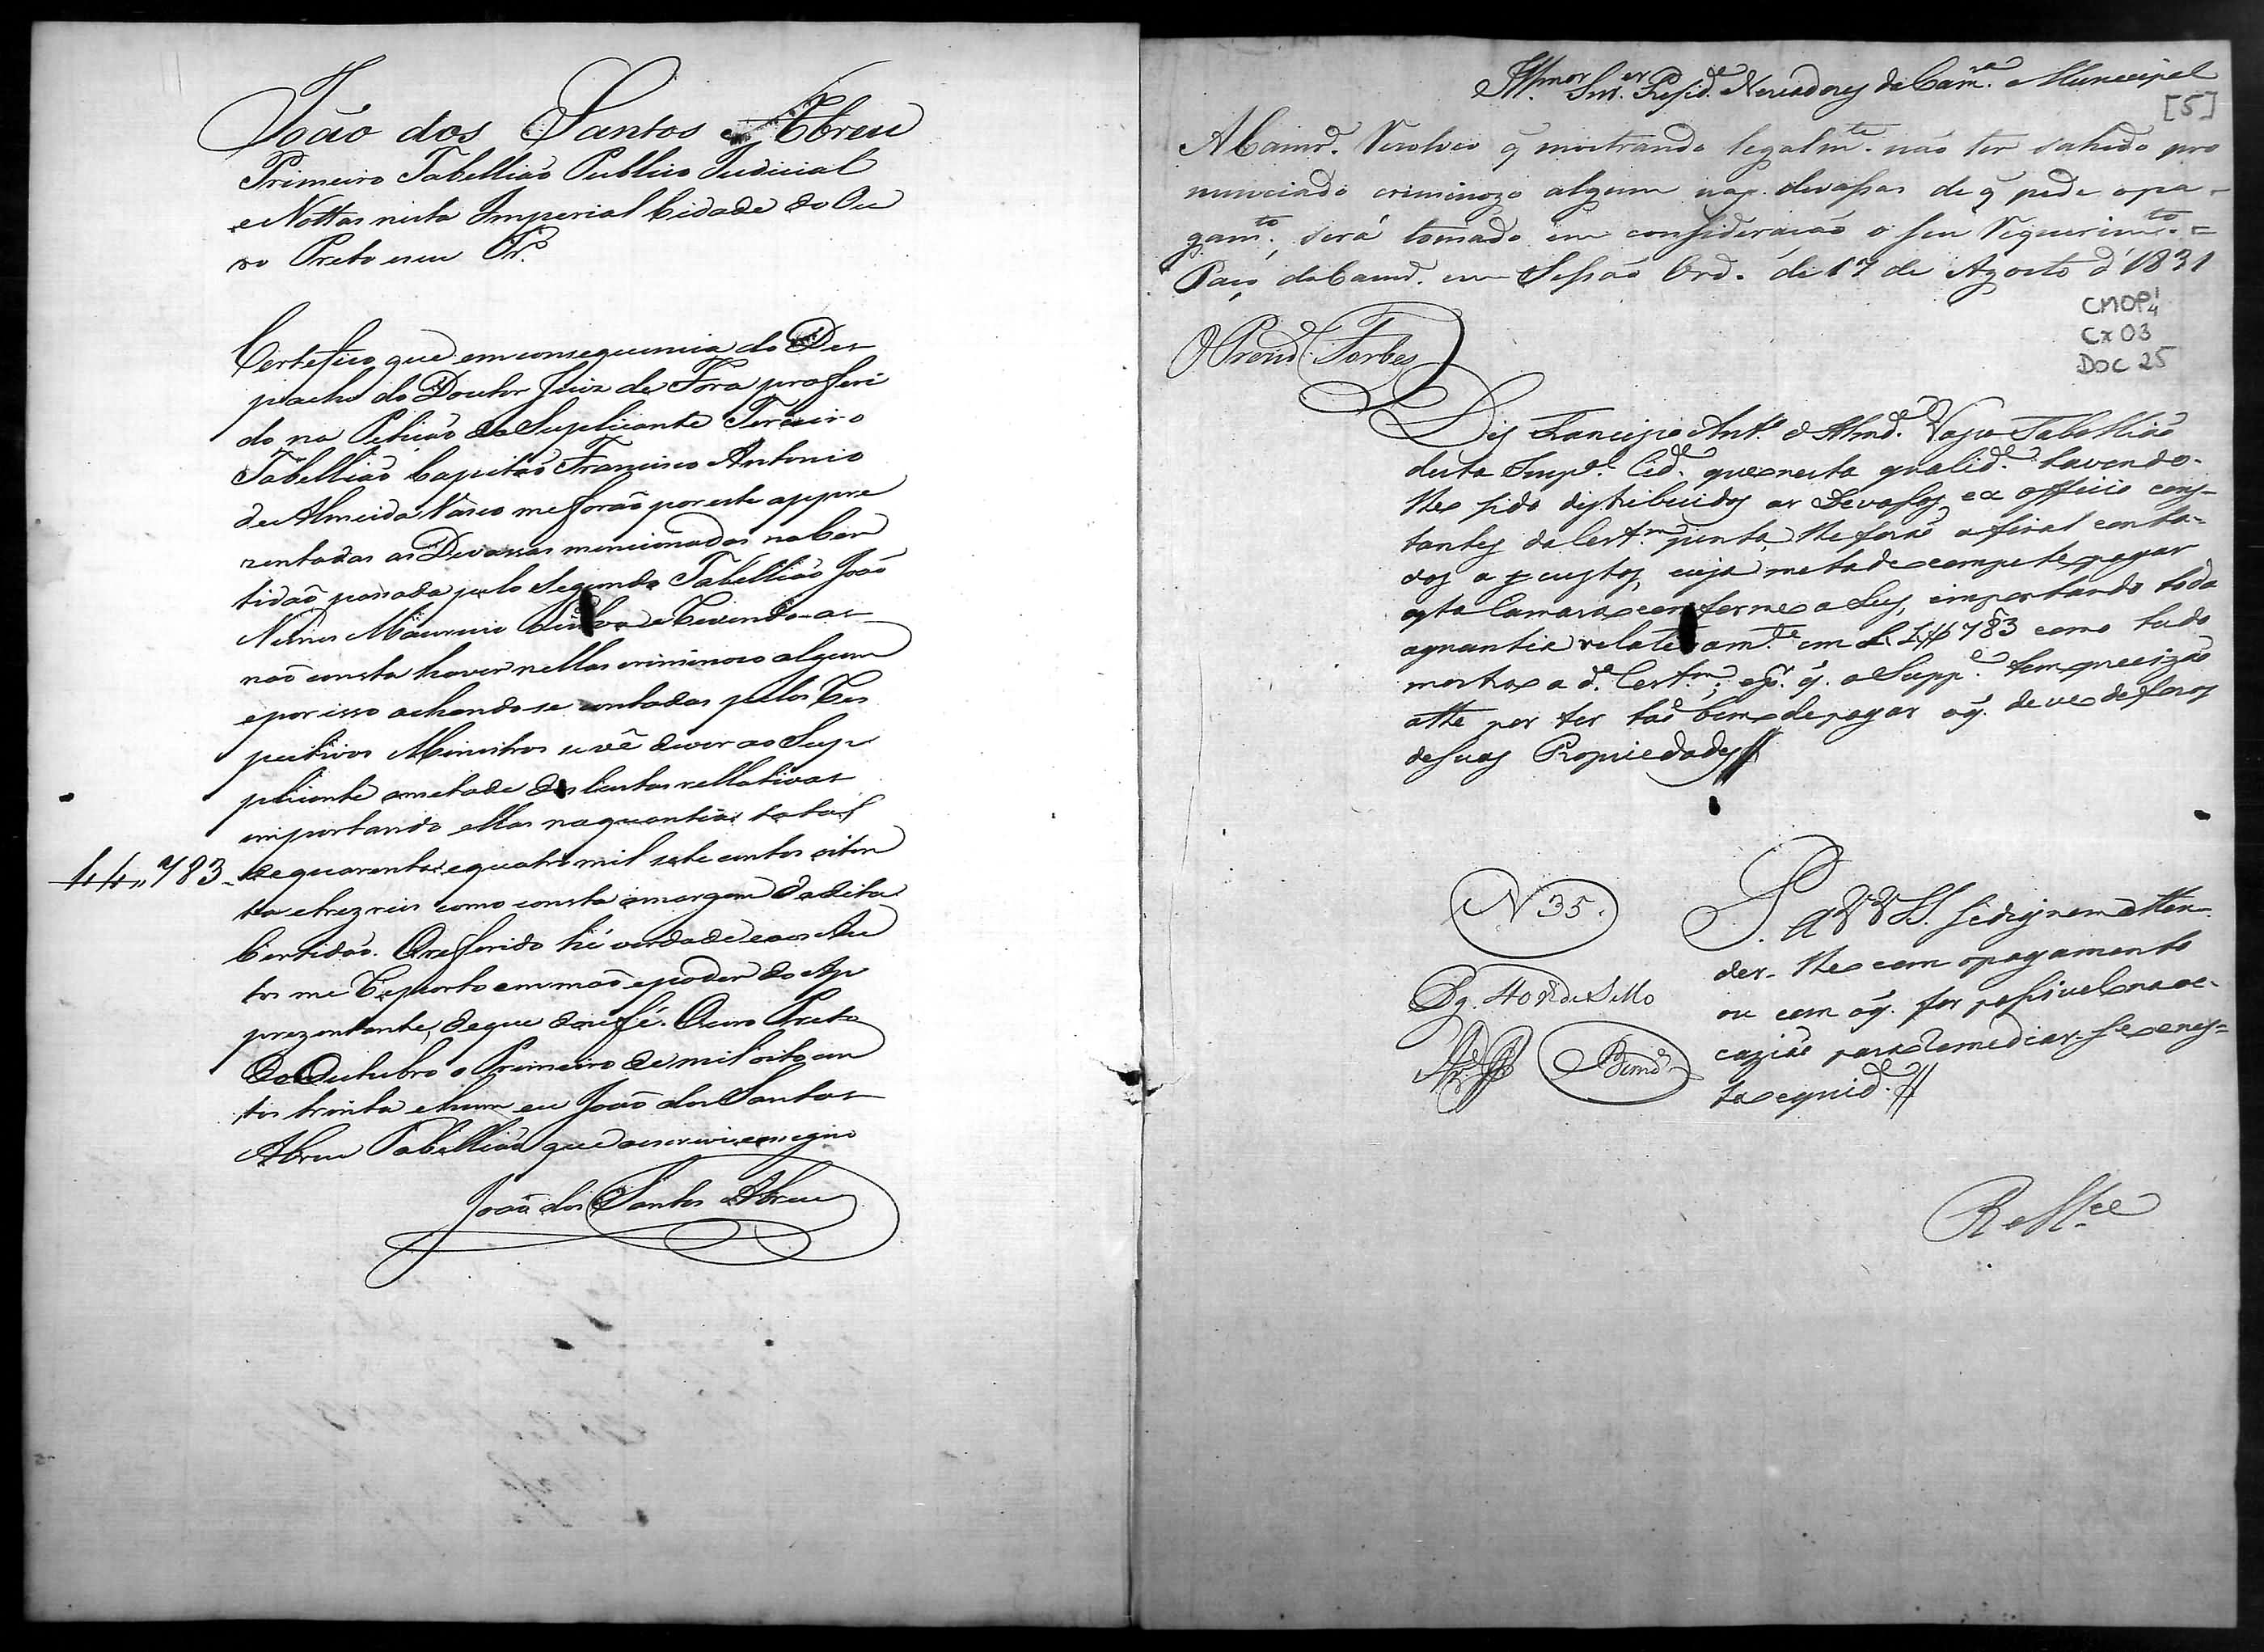 João dos Santos Abreu
Primeiro Tabellião Publico Judicial
e Nottas nesta Imperial Cidade do Ou
ro Preto e seu Tr.
Certefico que em consequencia do Des
pacho do Doutor Juiz de Fora proferi
do na Petição do Suplicante Terceiro
Tabellião Capitão Francisco Antonio
de Almeida Vasco me forão por este appre
zentadas as Devassas mencionadas na Cer
tidão passada pelo Segundo Tabellião João
Nunes Mauricio e Revendo-as
não consta haver nellas criminozo algum
e por isso achando-se contadas pelos Res
pectivos Ministros se vê dever ao Sup
plicante ametade das Custas rellativas
importando ellas na quantia total
44„783 de quarenta e quatro mil sete centos oiten
ta e trez reis como consta a margem da dita
Certidão. O referido hé verdade e aos Au
tos me Reporto em mão e poder do Ap
prezentante, de que dou fé. Ouro Preto
de Outubro o Primeiro de mil oito cen
tos trinta e hum eu João dos Santos
Abreu Tabellião que o escrevi e assigno
João dos Santos Abreu
Illmos Snrs. Presid.e Vereadores da Cam.ra Municipal
[5]
A Camr.a Resolveo q mostrando legalm.te não ter sahido pro
nunciado criminozo algum nas devassas de q pede o pa-
gam.to, será tomado em consideração o seu Requerim.to =
Paço da Camr.a em Sessão Ord. de 17 de Agosto d' 1831
CMOP 1/4
Cx 03
DOC 25
O Prezid. Forbes
Diz Francisco Ant.o d Almd.a Vasco Tabellião
desta Imp.l Cid.e que nesta qualid.e havendo-
lhe sido distribuidos as Devassas ex officio cons-
tantes da Cert.m junta, lhe forão a final conta-
dos as custas, cuja metade compete pagar
esta Camara conforme a Ley, importando toda
a quantia relativam.te em 44$783 como tudo
mostra a d.a Cert.m; e pr. q. o Supp.e tem precizão
atte por ter tão bem de pagar o q. deve de foros
de suas Propriedades//
N 35.
Pg. 40 r de Sello
P. a VV SS. se dignem atten-
der-lhe com o pagamento
ou com o q. for possivel na oc-
cazião para remediar-se a nes-
ta equid.e //
R. M.ce